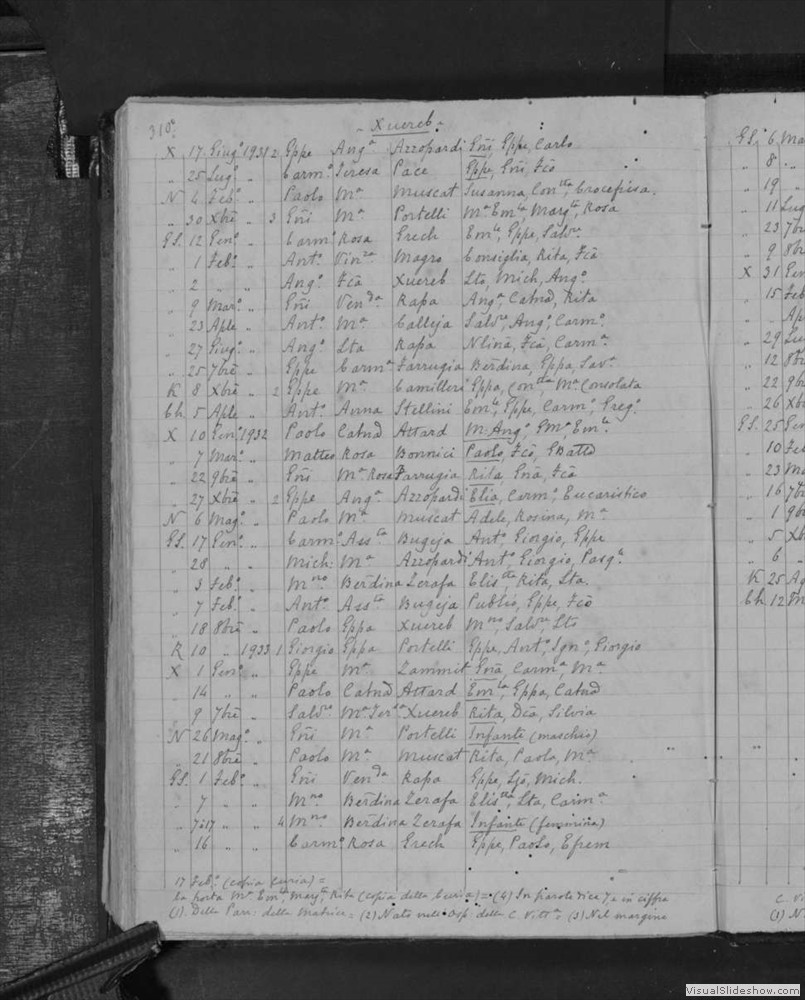 310.
- Xuereb -
X 17 Giug.o 1931 2 Gppe Ang.a Azzopardi Gñi, Gppe, Carlo
" 25 Lug.o " Carm.o Teresa Pace Gppe, Gñi, Fcō
N 4 Feb.o " Paolo M.a Muscat Susanna, Con.tta Crocefissa.
" 30 Xbrē " 3 Gñi M.a Portelli M.a Em.la, Marg.ta, Rosa
GS. 12 Gen.o " Carm.o Rosa Grech Em.le, Gppe, Salv.re
" 1 Feb.o " Ant.o Vin.za Magro Consiglia, Rita, Fcā
" 2 " " Ang.o Fcā Xuereb Lto, Mich, Ang.o
" 9 Mar.o " Gñi Ven.da Rapa Ang.a, Catnā, Rita
" 23 Aple " Ant.o M.a Calleja Salv.re, Ang.o, Carm.o
" 27 Giug.o " Ang.o Lta Rapa Nlinā, Fcā, Carm.a
" 25 7brē " Gppe Carm.a Farrugia Berdina, Gppa, Sav.a
K 8 Xbrē " 2 Gppe M.a Camilleri Gppa, Con.tta M.a Consolata
Ch 5 Aple " Ant.o Anna Stellini Em.le, Gppe, Carm.o, Greg.o
X 10 Gen.o 1932 Paolo Catnā Attard M. Ang.o, Em.le
" 7 Mar.o " Matteo Rosa Bonnici Paolo, Fcō, GBatta
" 22 9brē " Gñi M.a Rosa Farrugia Rita, Gnā, Fcā
" 27 Xbrē " 2 Gppe Ang.a Azzopardi Elia, Carm.o, Eucaristico
N 6 Mag.o " Paolo M.a Muscat Adele, Rosina, M.a
GS. 17 Gen.o " Carm.o Ass.ta Bugeja Ant.o Giorgio, Gppe
" 28 " " Mich: M.a Azzopardi Ant.o, Giorgio, Pasq.le
" 3 Feb.o " M.no Berdina Zerafa Elis.tta Rita, Lta.
" 7 Feb.o " Ant.o Ass.ta Bugeja Publio, Gppe, Fcō
" 18 8brē " Paolo Gppa Xuereb M.no, Salv.re, Lto
K 10 " 1933 1 Giorgio Gppa Portelli Gppe, Ant.o, Ign.o, Giorgio
X 1 Gen.o " Gppe M.a Zammit Gnā, Carm.a, M.a
" 14 " " Paolo Catnā Attard Em.la, Gppa, Catnā
" 9 7brē " Salv.re M.a Ter.a Xuereb Rita, Dcā, Silvia
N 26 Mag.o " Gñi M.a Portelli Infante (maschio)
" 21 8brē " Paolo M.a Muscat Rita, Paola, M.a
GS. 1 Feb.o " Gñi Ven.da Rapa Gppe, Mich.
" 7 " " M.no Berdina Zerafa Elis.tta, Lta, Carm.a
" 7:17 " " 4 M.no Berdina Zerafa Infante (femmina)
" 16 " " Carm.o Rosa Grech Gppe, Paolo, Efrem
17 Feb.o (copia Curia) =
la porta M.a Em.la, Marg.ta, Rita (copia della Curia) = (4) In parole dice 7, e in cifra
(1). Della Parr. della Matrice = (2) Nato nell' Osp. della C. Vitt.a = (3) Nel margine
GS. 6 Ma
" 8 "
" 19 "
" 11 Lug
" 23 7br
" 9 8br
X 31 Gen
" 15 Feb
" Ap
" 29 Lu
" 12 8br
" 22 9br
" 26 Xb
GS. 25 Gen
" 10 Feb
" 23 Ma
" 16 7b
" 1 9b
" 5 Xb
" 6 "
K 25 Ag
Ch 12 M
C. Vi
(1) N
VisualSlideshow.com